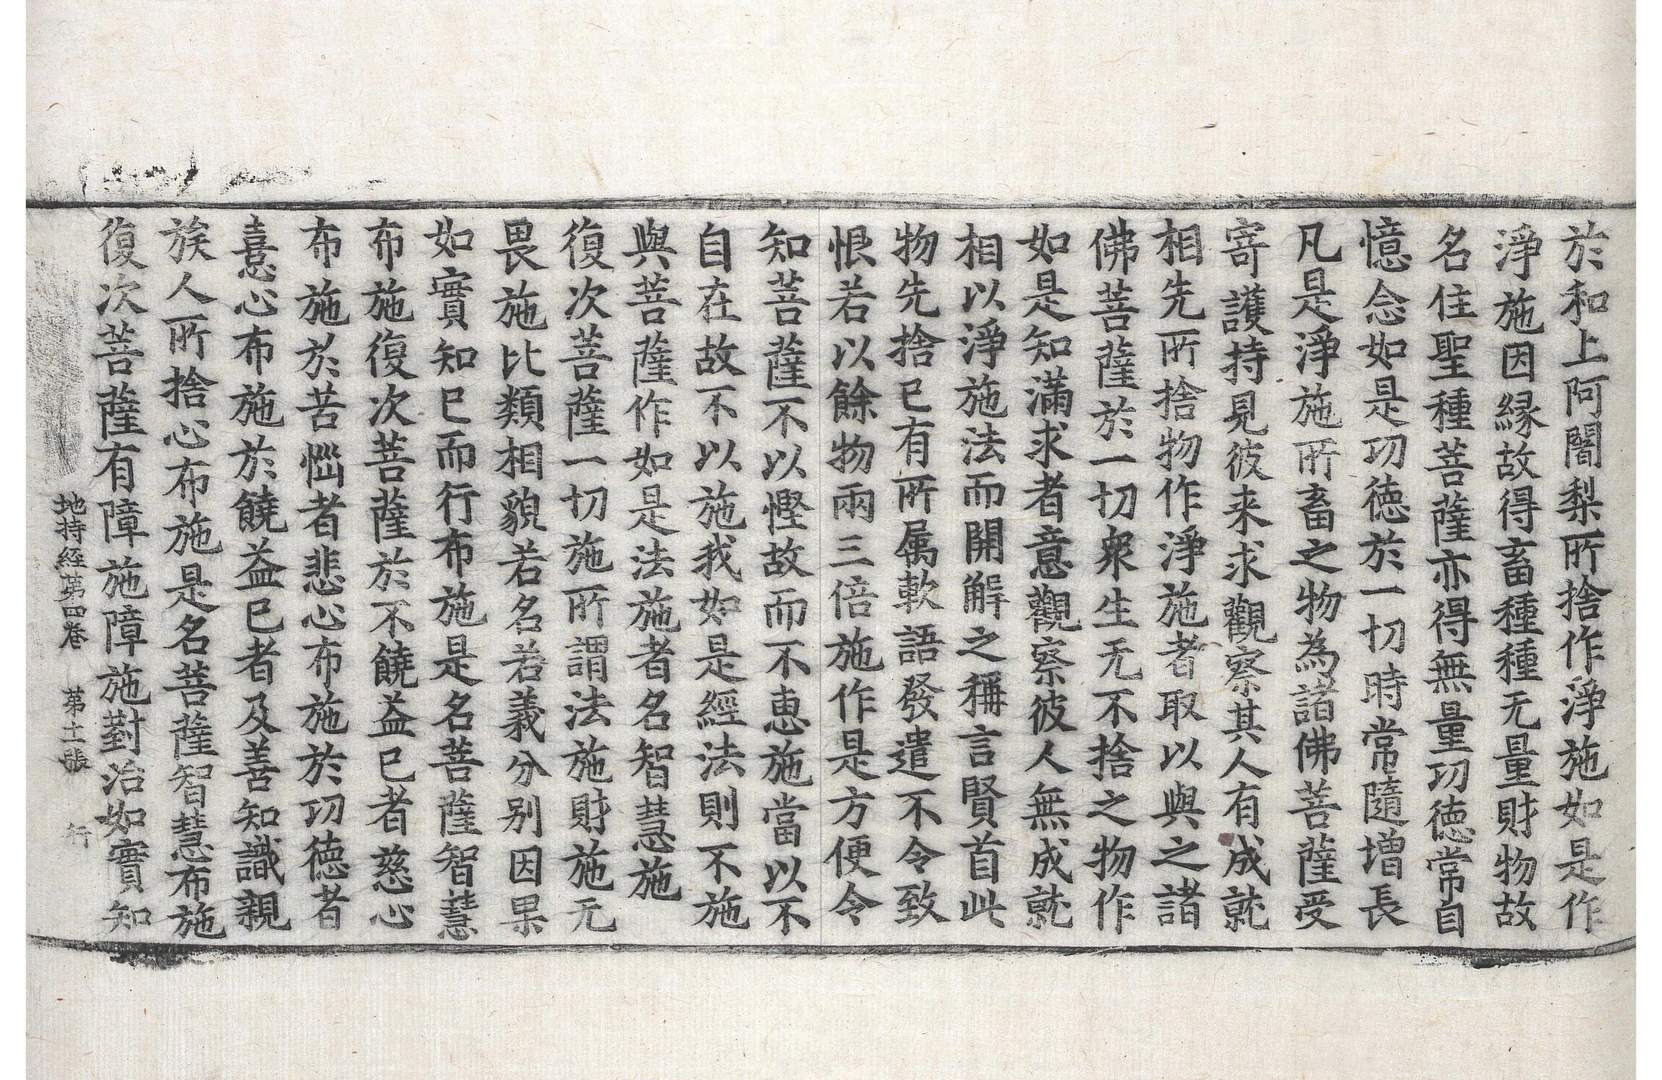 於和上阿闍梨所捨作淨施如是作
淨施因縁故得畜種種无量財物故
名住聖種菩薩亦得無量功徳常自
憶念如是功徳於一切時常隨增長
凡是淨施所畜之物為諸佛菩薩受
寄護持見彼来求觀察其人有成就
相先所捨物作淨施者取以與之諸
佛菩薩於一切衆生无不捨之物作
如是知滿求者意觀察彼人無成就
相以淨施法而開解之稱言賢首此
物先捨已有所属軟語發遣不令致
恨若以餘物兩三倍施作是方便令
知菩薩不以慳故而不恵施當以不
自在故不以施我如是經法則不施
與菩薩作如是法施者名智慧施
復次菩薩一切施所謂法施財施无
畏施比類相貌若名若義分别因果
如實知已而行布施是名菩薩智慧
布施復次菩薩於不饒益已者慈心
布施於苦惱者悲心布施於功徳者
憙心布施於饒益已者及善知識親
族人所捨心布施是名菩薩智慧布施
復次菩薩有障施障施對治如實知
地持經第四卷 第十一張 行